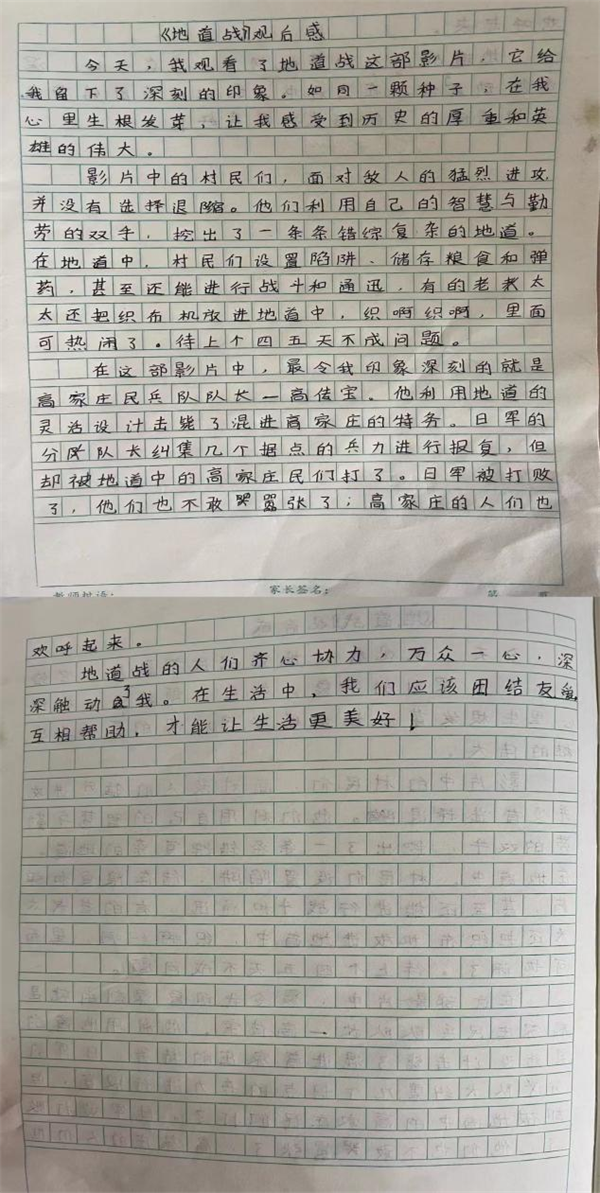 《地道战》观后感
今天，我观看了地道战这部影片，它给
我留下了深刻的印象。如同一颗种子，在我
心里生根发芽，让我感受到历史的厚重和英
雄的伟大。
影片中的村民们，面对敌人的猛烈进攻
并没有选择退缩。他们利用自己的智慧与勤
劳的双手，挖出了一条条错综复杂的地道。
在地道中，村民们设置陷阱、储存粮食和弹
药，甚至还能进行战斗和通迅，有的老教太
太还把织布机放进地道中，织啊织啊，里面
可热闹了。待上个四五天不成问题。
在这部影片中，最令我印象深刻的就是
高家庄民兵队队长一高传宝。他利用地道的
灵活设计击毙了混进高家庄的特务。日军的
分队长纠集几个据点的兵力进行报复，但
却被地道中的高家庄民们打了。日军被打败
了，他们也不敢嚣张了；高家庄的人们也
家长签名：
欢呼起来。
地道战的人们齐心协力，万众一心，深
深触动了我。在生活中，我们应该团结友爱，
互相帮助，才能让生活更美好！